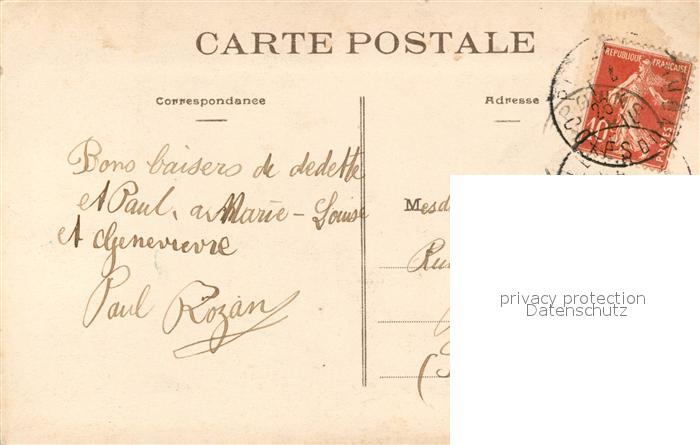 CARTE POSTALE
Correspondance
Adresse
RÉPUBLIQUE FRANÇAISE
10
POSTES
Bons baisers de dedette
et Paul, a Marie-Louise
et Genevievre
Paul Rozan
Mesd
Ru
privacy protection
Datenschutz